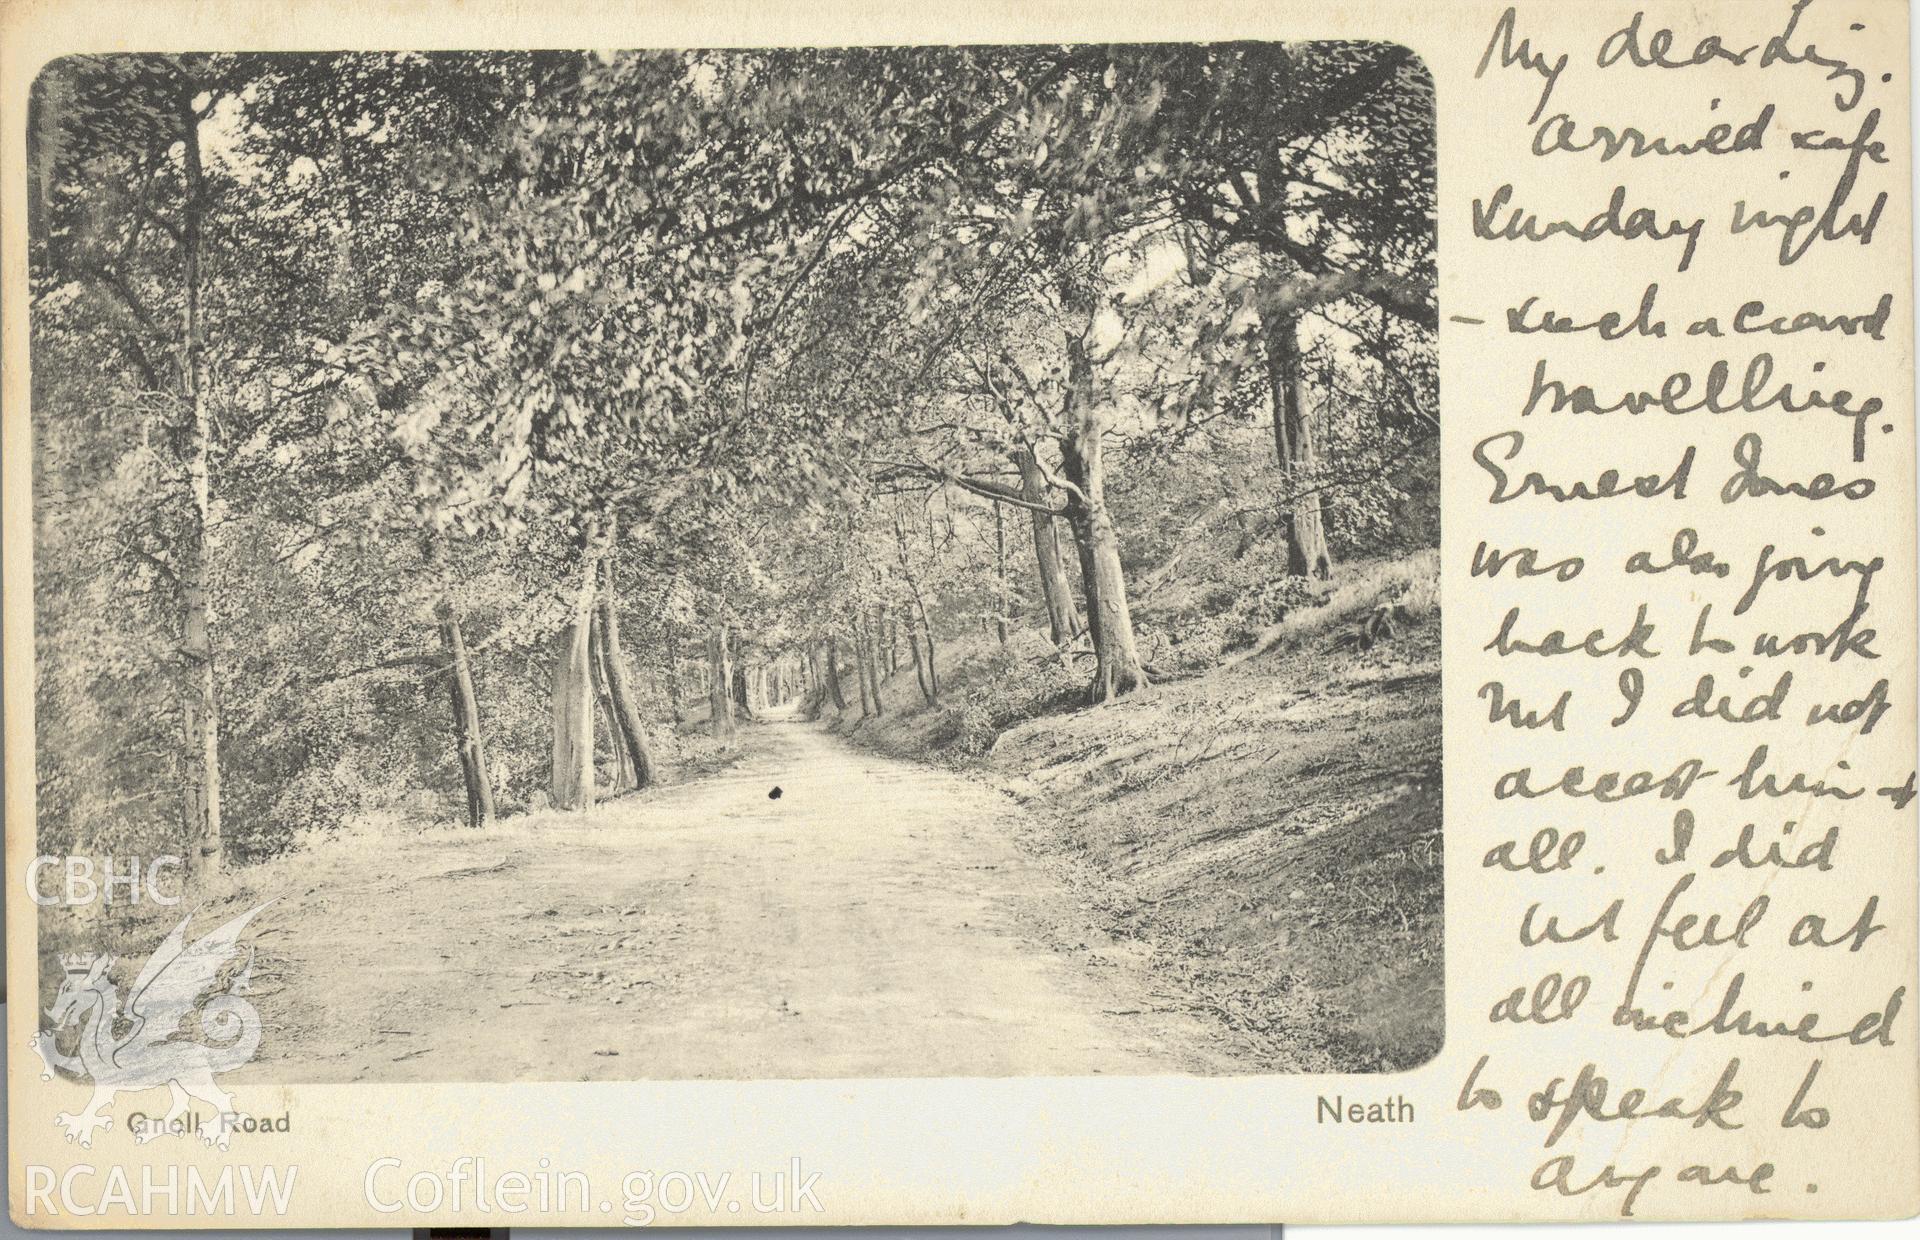 My dear Lizz.
Arrived safe
Sunday night
- such a crowd
travelling.
Ernest Jones
was also going
back to work
but I did not
accost him at
all. I did
not feel at
all inclined
to speak to
any one.
Gnoll Road
Neath
CBHC
RCAHMW
Coflein.gov.uk